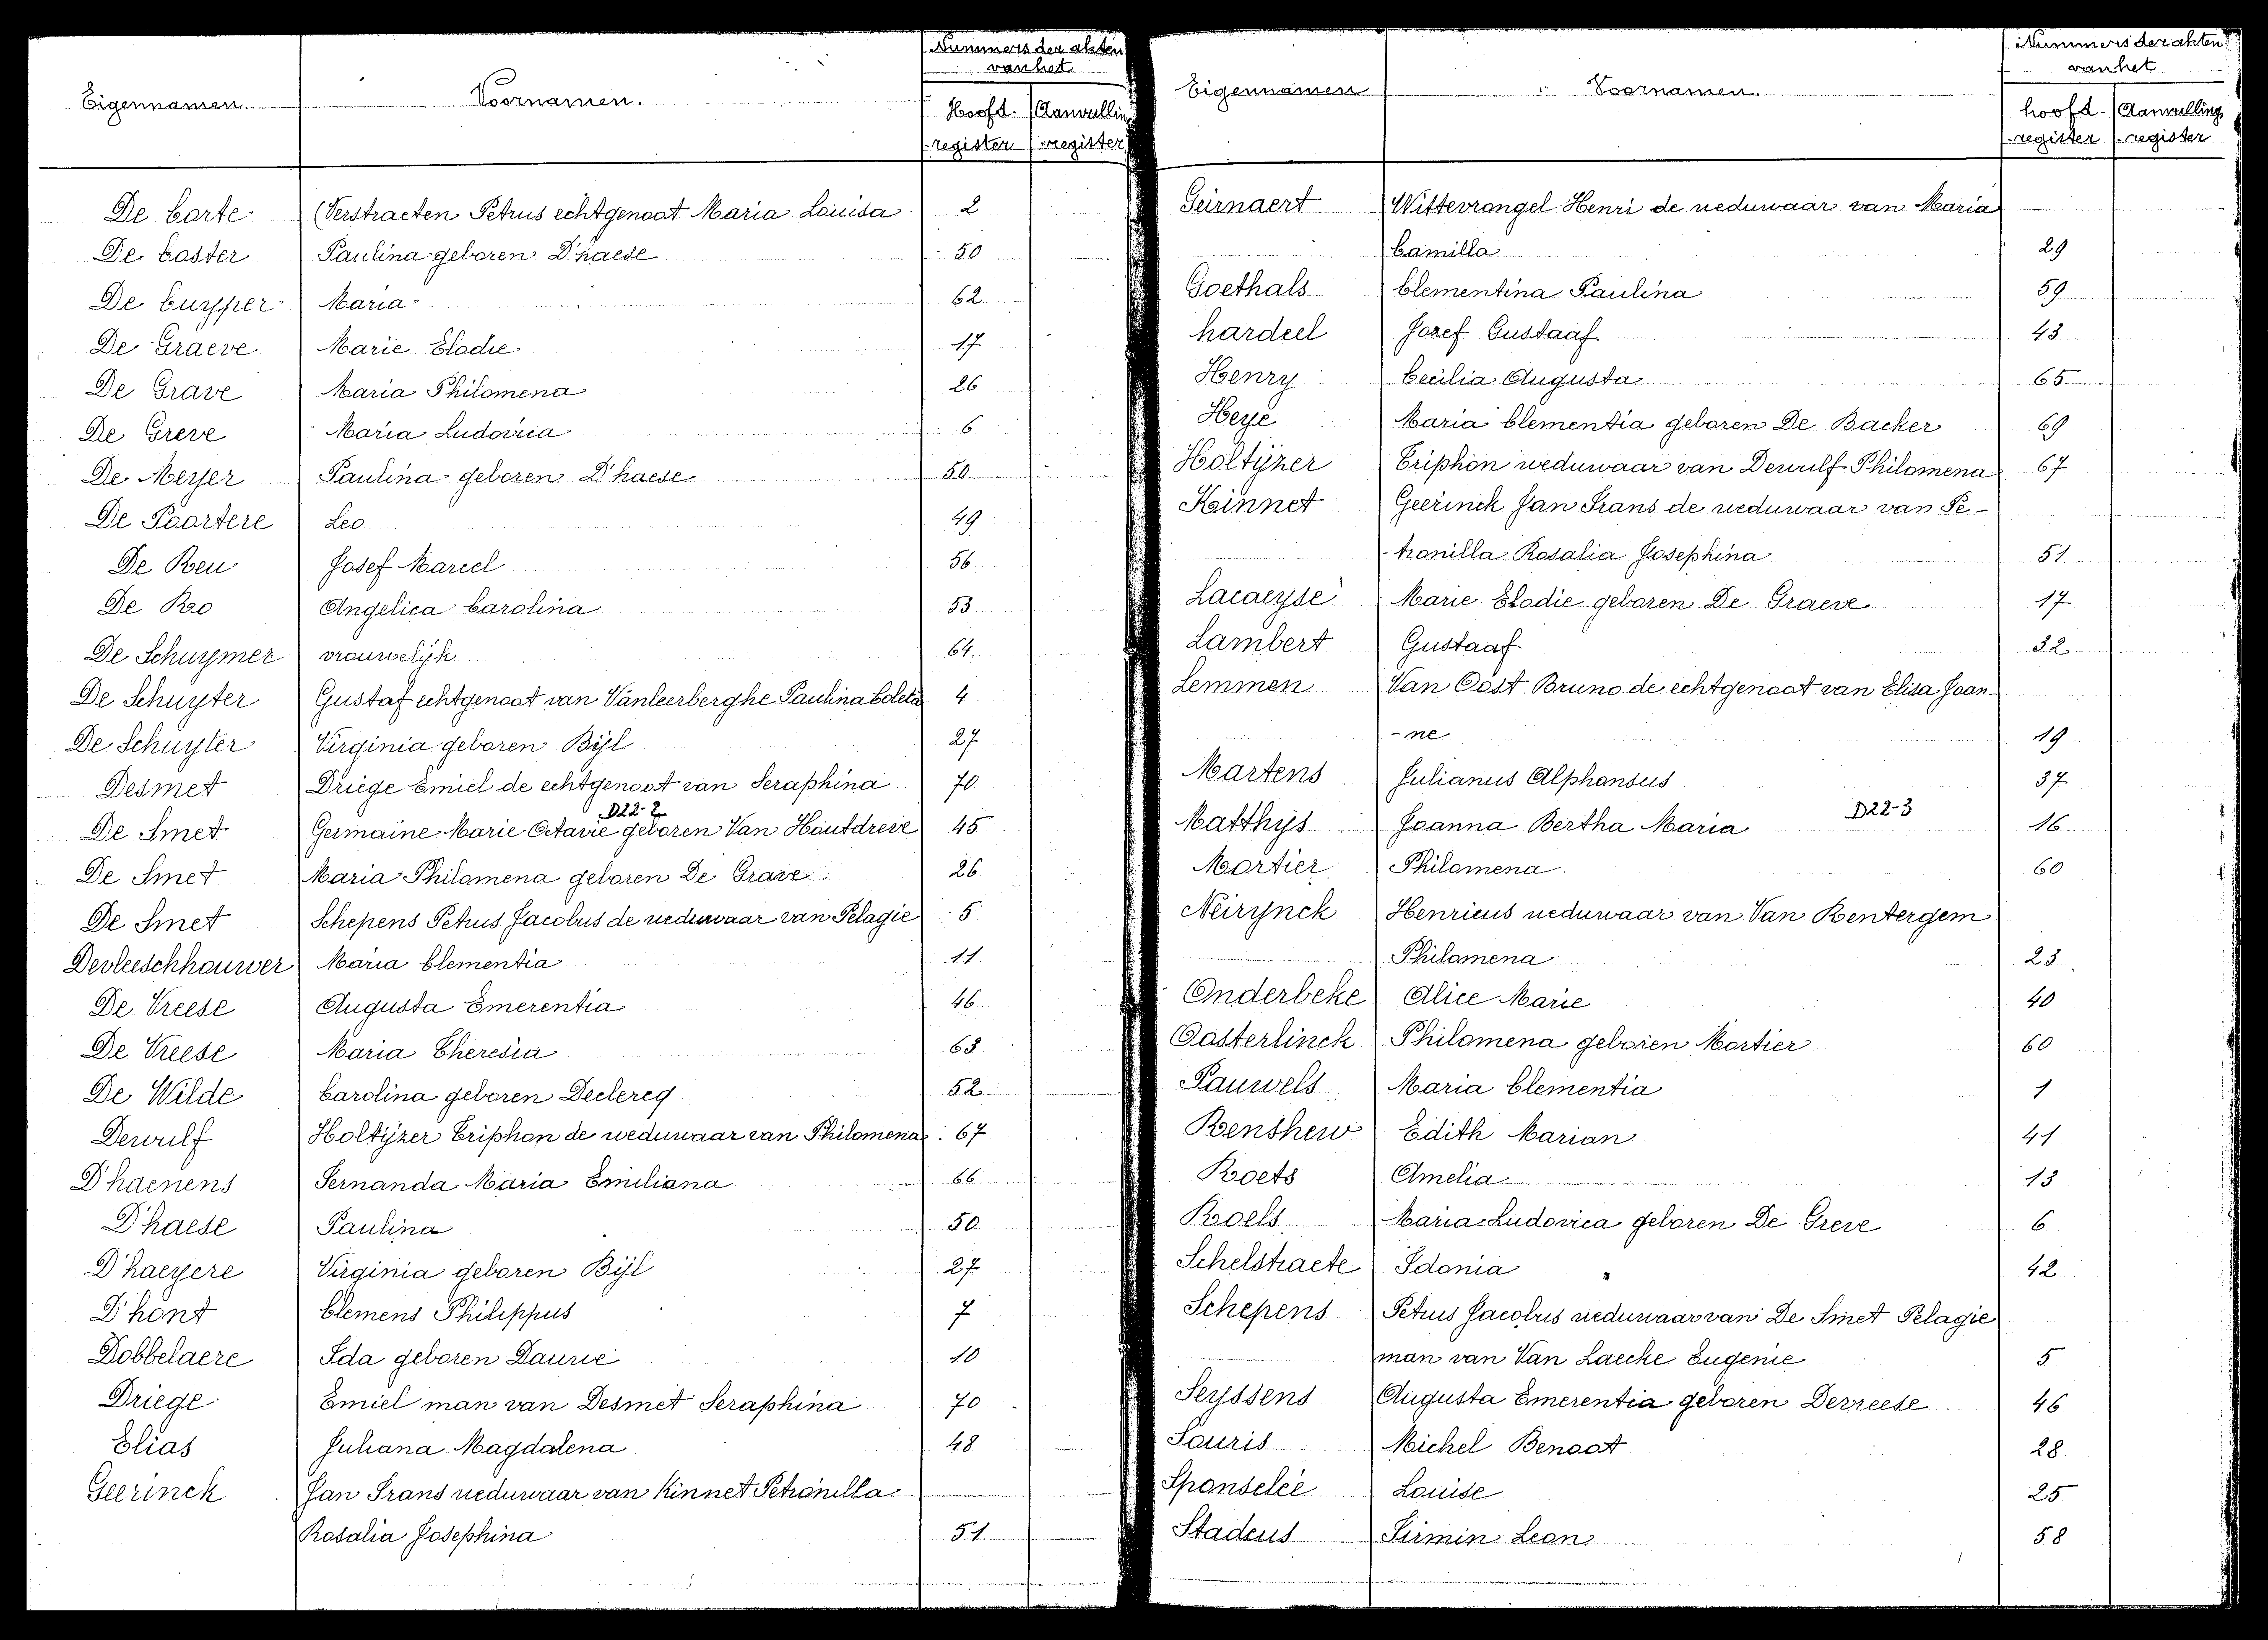 Nummers der akten
van het
Eigennamen. Voornamen.
Hoofd- Aanvullin
register register
De Corte (Verstraeten Petrus echtgenoot Maria Louisa 2
De Coster Paulina geboren D'haese 50
De Cuyper Maria 62
De Graeve Marie Elodie 17
De Grave Maria Philomena 26
De Greve Maria Ludovica 6
De Meyer Paulina geboren D'haese 50
De Paortere Leo 49
De Reu Josef Marcel 56
De Roo Angelica Carolina 53
De Schuymer vrouwelijk 64
De Schuyter Gustaf echtgenoot van Vanleerberghe Paulina Coleta 4
De Schuyter Virginia geboren Bijl 27
Desmet Driege Emiel de echtgenoot van Seraphina 70
D22-2
De Smet Germaine Marie Octavie geboren Van Houtdreve 45
De Smet Maria Philomena geboren De Grave 26
De Smet Schepens Petrus Jacobus de weduwaar van Pelagie 5
Devleeschhouwer Maria Clementia 11
De Vreese Augusta Emerentia 46
De Vreese Maria Theresia 63
De Wilde Carolina geboren Declercq 52
Dewulf Holtijzer Triphon de weduwaar van Philomena 67
D'haenens Fernanda Maria Emiliana 66
D'haese Paulina 50
D'haeyere Virginia geboren Bijl 27
D'hont Clemens Philippus 7
Dobbelaere Ida geboren Dauwe 10
Driege Emiel man van Desmet Seraphina 70
Elias Juliana Magdalena 48
Geerinck Jan Frans weduwaar van Kinnet Petronilla
Rosalia Josephina 51
Nummers der akten
van het
Eigennamen Voornamen.
hoofd- Aanvulling
register register
Geirnaert Wittevrongel Henri de weduwaar van Maria
Camilla 29
Goethals Clementina Paulina 59
hardeel Jozef Gustaaf 43
Henry Cecilia Augusta 65
Heye Maria Clementia geboren De Backer 69
Holtijzer Triphon weduwaar van Dewulf Philomena 67
Kinnet Geerinck Jan Frans de weduwaar van Pe-
-tronilla Rosalia Josephina 51
Lacaeyse Marie Elodie geboren De Graeve 17
Lambert Gustaaf 32
Lemmen Van Oost Bruno de echtgenoot van Elisa Joan-
-ne 19
Martens Julianus Alphonsus 37
Matthys Joanna Bertha Maria D22-3 16
Mortier Philomena 60
Neirynck Henricus weduwaar van Van Rentergem
Philomena 23
Onderbeke Alice Marie 40
Oosterlinck Philomena geboren Mortier 60
Pauwels Maria Clementia 1
Renshew Edith Marian 41
Roets Amelia 13
Roels Maria Ludovica geboren De Greve 6
Schelstraete Idonia 42
Schepens Petrus Jacobus weduwaar van De Smet Pelagie
man van Van Laecke Eugenie 5
Seyssens Augusta Emerentia geboren Devreese 46
Souris Michel Benoot 28
Sponselée Louise 25
Stadeus Firmin Leon 58